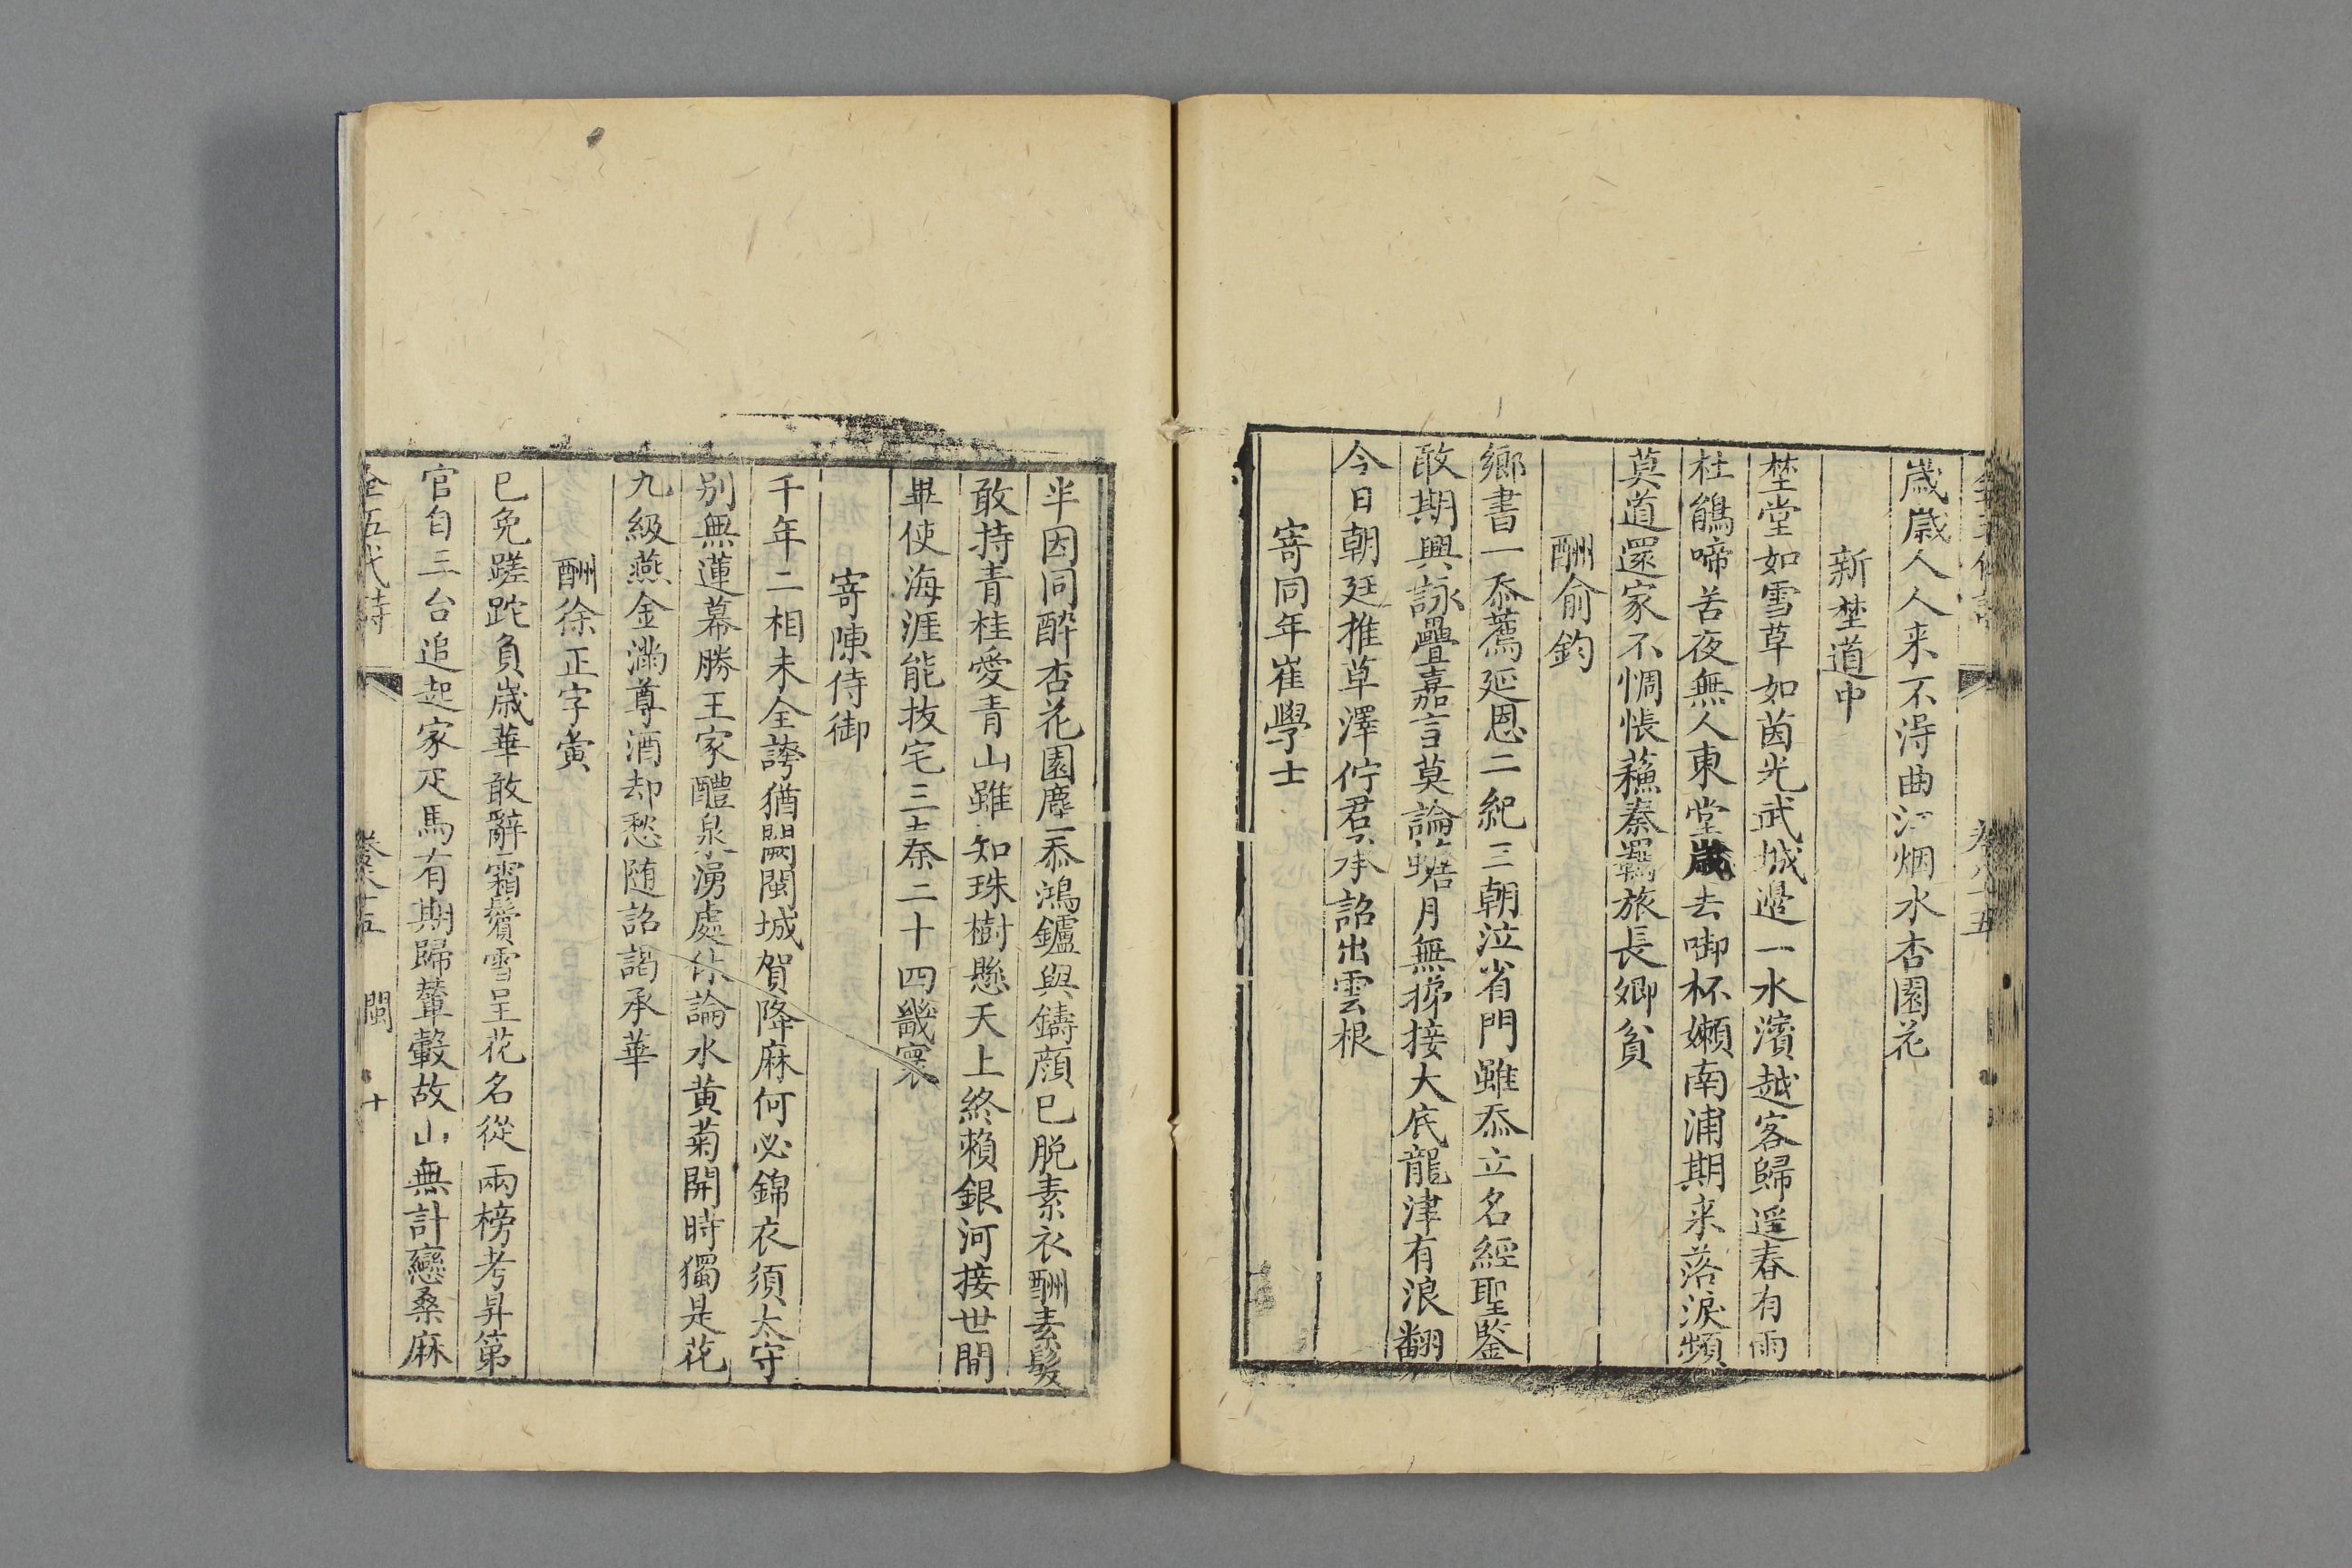 全五代詩 卷八十五
歲歲人人来不淂曲江烟水杏園花
新埜道中
埜堂如雪草如茵光武城邊一水濱越客歸遥春有雨
杜鵑啼苦夜無人東堂歲去啣杯嬾南浦期来落淚頻
莫道還家不惆悵蘓秦羈旅長卿貧
酬俞鈞
鄉書一忝薦延恩二紀三朝泣省門雖忝立名經聖鑒
敢期興詠疊嘉言莫論蟾月無梯接大底龍津有浪翻
今日朝廷推草澤佇君承詔出雲根
寄同年崔學士
半因同醉杏花園塵忝鴻鑪與鑄顔巳脱素衣酬素髮
敢持青桂愛青山雖知珠樹懸天上終賴銀河接世間
畢使海涯能抜宅三秦二十四畿寰
寄陳侍御
千年二相未全誇猶闕閩城賀降麻何必錦衣須太守
别無蓮幕勝王家醴泉湧處休論水黄菊開時獨是花
九級燕金滿尊酒却愁随詔謁承華
酬徐正字夤
巳免蹉跎負歲華敢辭霜鬢雪呈花名從兩榜考昇第
官自三台追起家疋馬有期歸輦轂故山無計戀桑麻
全五代詩 卷八十五 閩 十